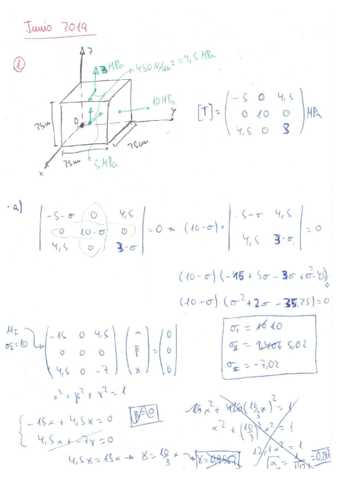 Junio 2019
①
z
3 MPa
450 N/cm² = 4,5 MPa
10 MPa
y
25cm
25cm
25cm
x
5 MPa
[T] = ( -5 0 4,5
0 10 0
4,5 0 3 ) MPa
·a)
| -5-σ 0 4,5
0 10-σ 0
4,5 0 3-σ | = 0 → (10-σ)· | -5-σ 4,5
4,5 3-σ | = 0
(10-σ)(-15 + 5σ - 3σ + σ²
(10-σ)(σ² + 2σ - 35,25) = 0
σ_I = 10
5,02
= -7,02
= 10
( -15 0 4,5
0 0 0
4,5 0 -7 ) · ( α
β
γ ) = ( 0
0
0 )
α² + β² + γ² = 1
β=0
{ -15α + 4,5γ = 0
4,5α + -7γ = 0
4,5γ = 15α → γ = 10/3 α
α² + (10/3)² α² = 1